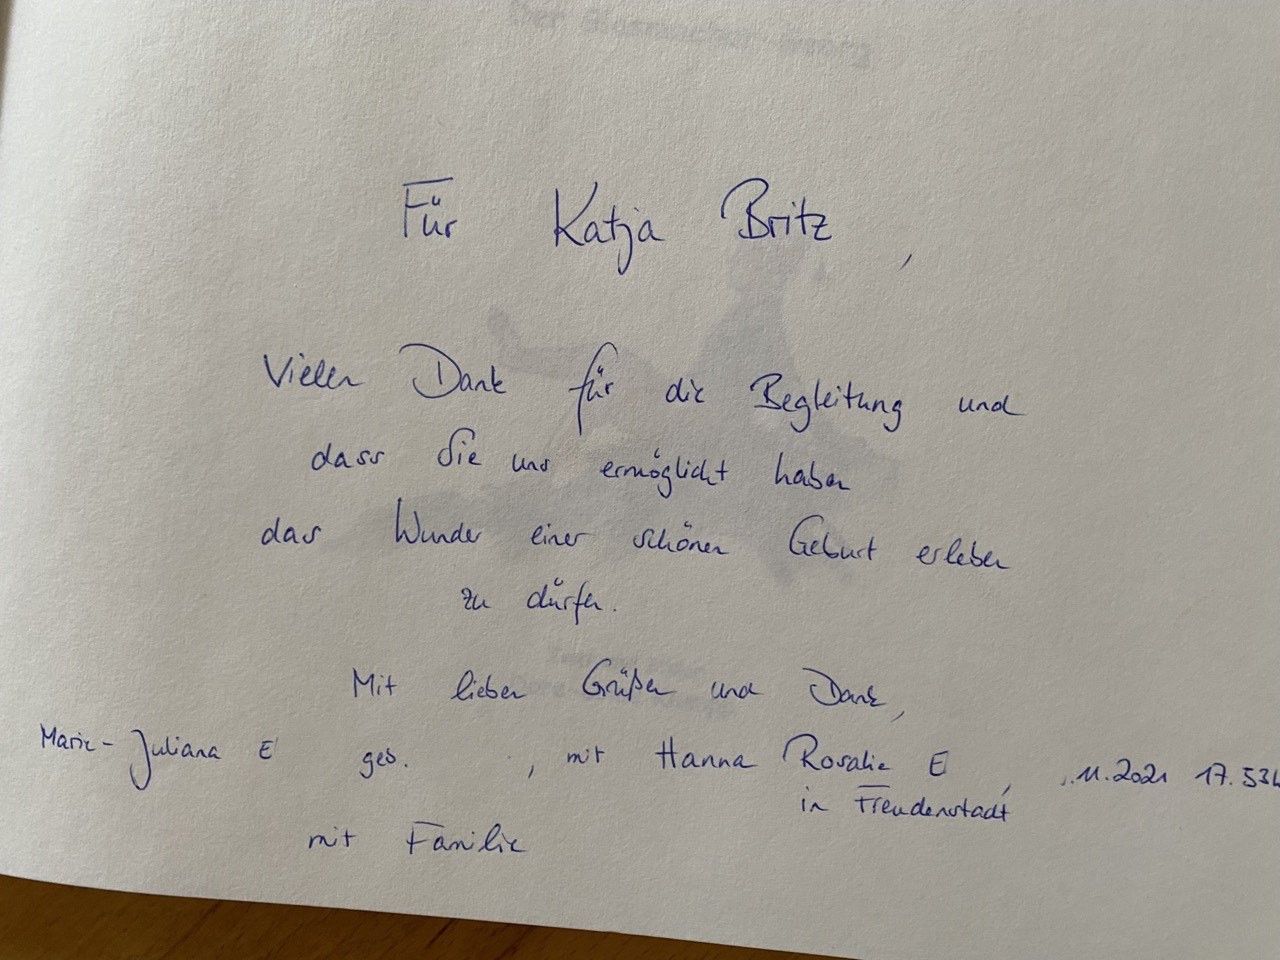 Für Katja Britz,
Vielen Dank für die Begleitung und
dass Sie uns ermöglicht haben
das Wunder einer schönen Geburt erleben
zu dürfen.
Mit lieben Grüßen und Dank,
Marie-Juliana E geb. , mit Hanna Rosalie E , .11.2021 17.53h
in Freudenstadt
mit Familie